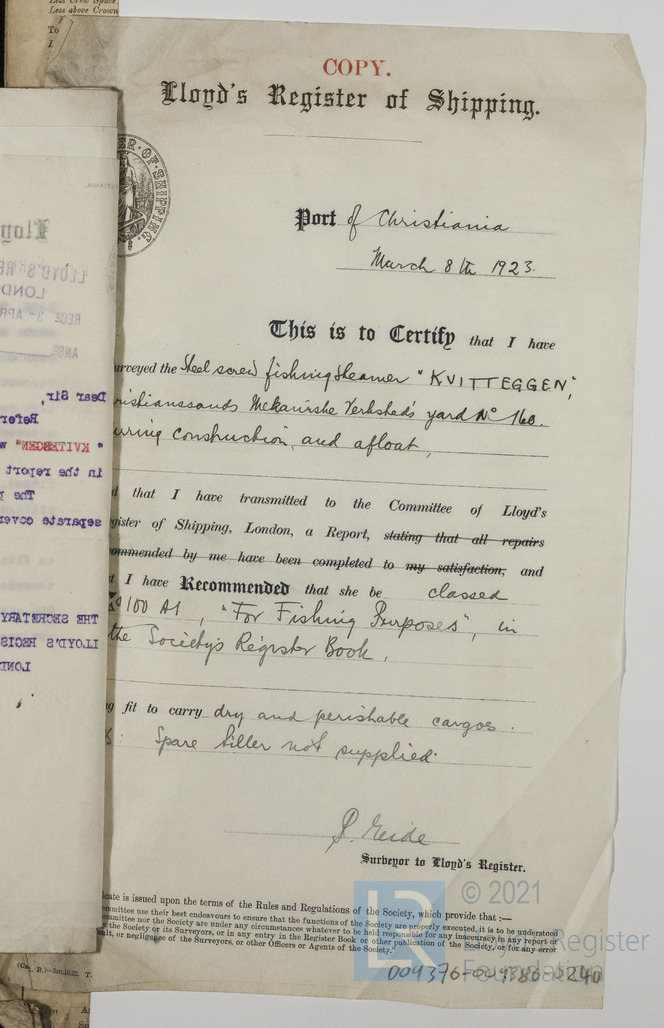 Less Crew Space
Less above Crown
To
COPY.
Lloyd's Register of Shipping.
Port of Christiania
March 8th 1923.
This is to Certify that I have
urveyed the Steel screw fishing steamer "KVITTEGGEN",
ristianssands Mekaniske Verksted's yard No 160.
uring construction, and afloat,
d that I have transmitted to the Committee of Lloyd's
gister of Shipping, London, a Report, stating that all repairs
ommended by me have been completed to my satisfaction; and
t I have Recommended that she be classed
100 A1, "For Fishing Purposes", in
the Society's Register Book.
g fit to carry dry and perishable cargoes.
Spare tiller not supplied.
Surveyor to Lloyd's Register.
cate is issued upon the terms of the Rules and Regulations of the Society, which provide that :—
ommittee use their best endeavours to ensure that the functions of the Society are properly executed, it is to be understood
ommittee nor the Society are under any circumstances whatever to be held responsible for any inaccuracy in any report or
the Society or its Surveyors, or in any entry in the Register Book or other publication of the Society, or for any error
ult, or negligence of the Surveyors, or other Officers or Agents of the Society."
REGISTER OF SHIPPING
Dear Sir,
Refer
"KVITTEGGEN" w
in the report
The
separate cover
THE SECRETARY
LLOYD'S REGIS
LOND
LR © 2021
Lloyd's Register
Foundation